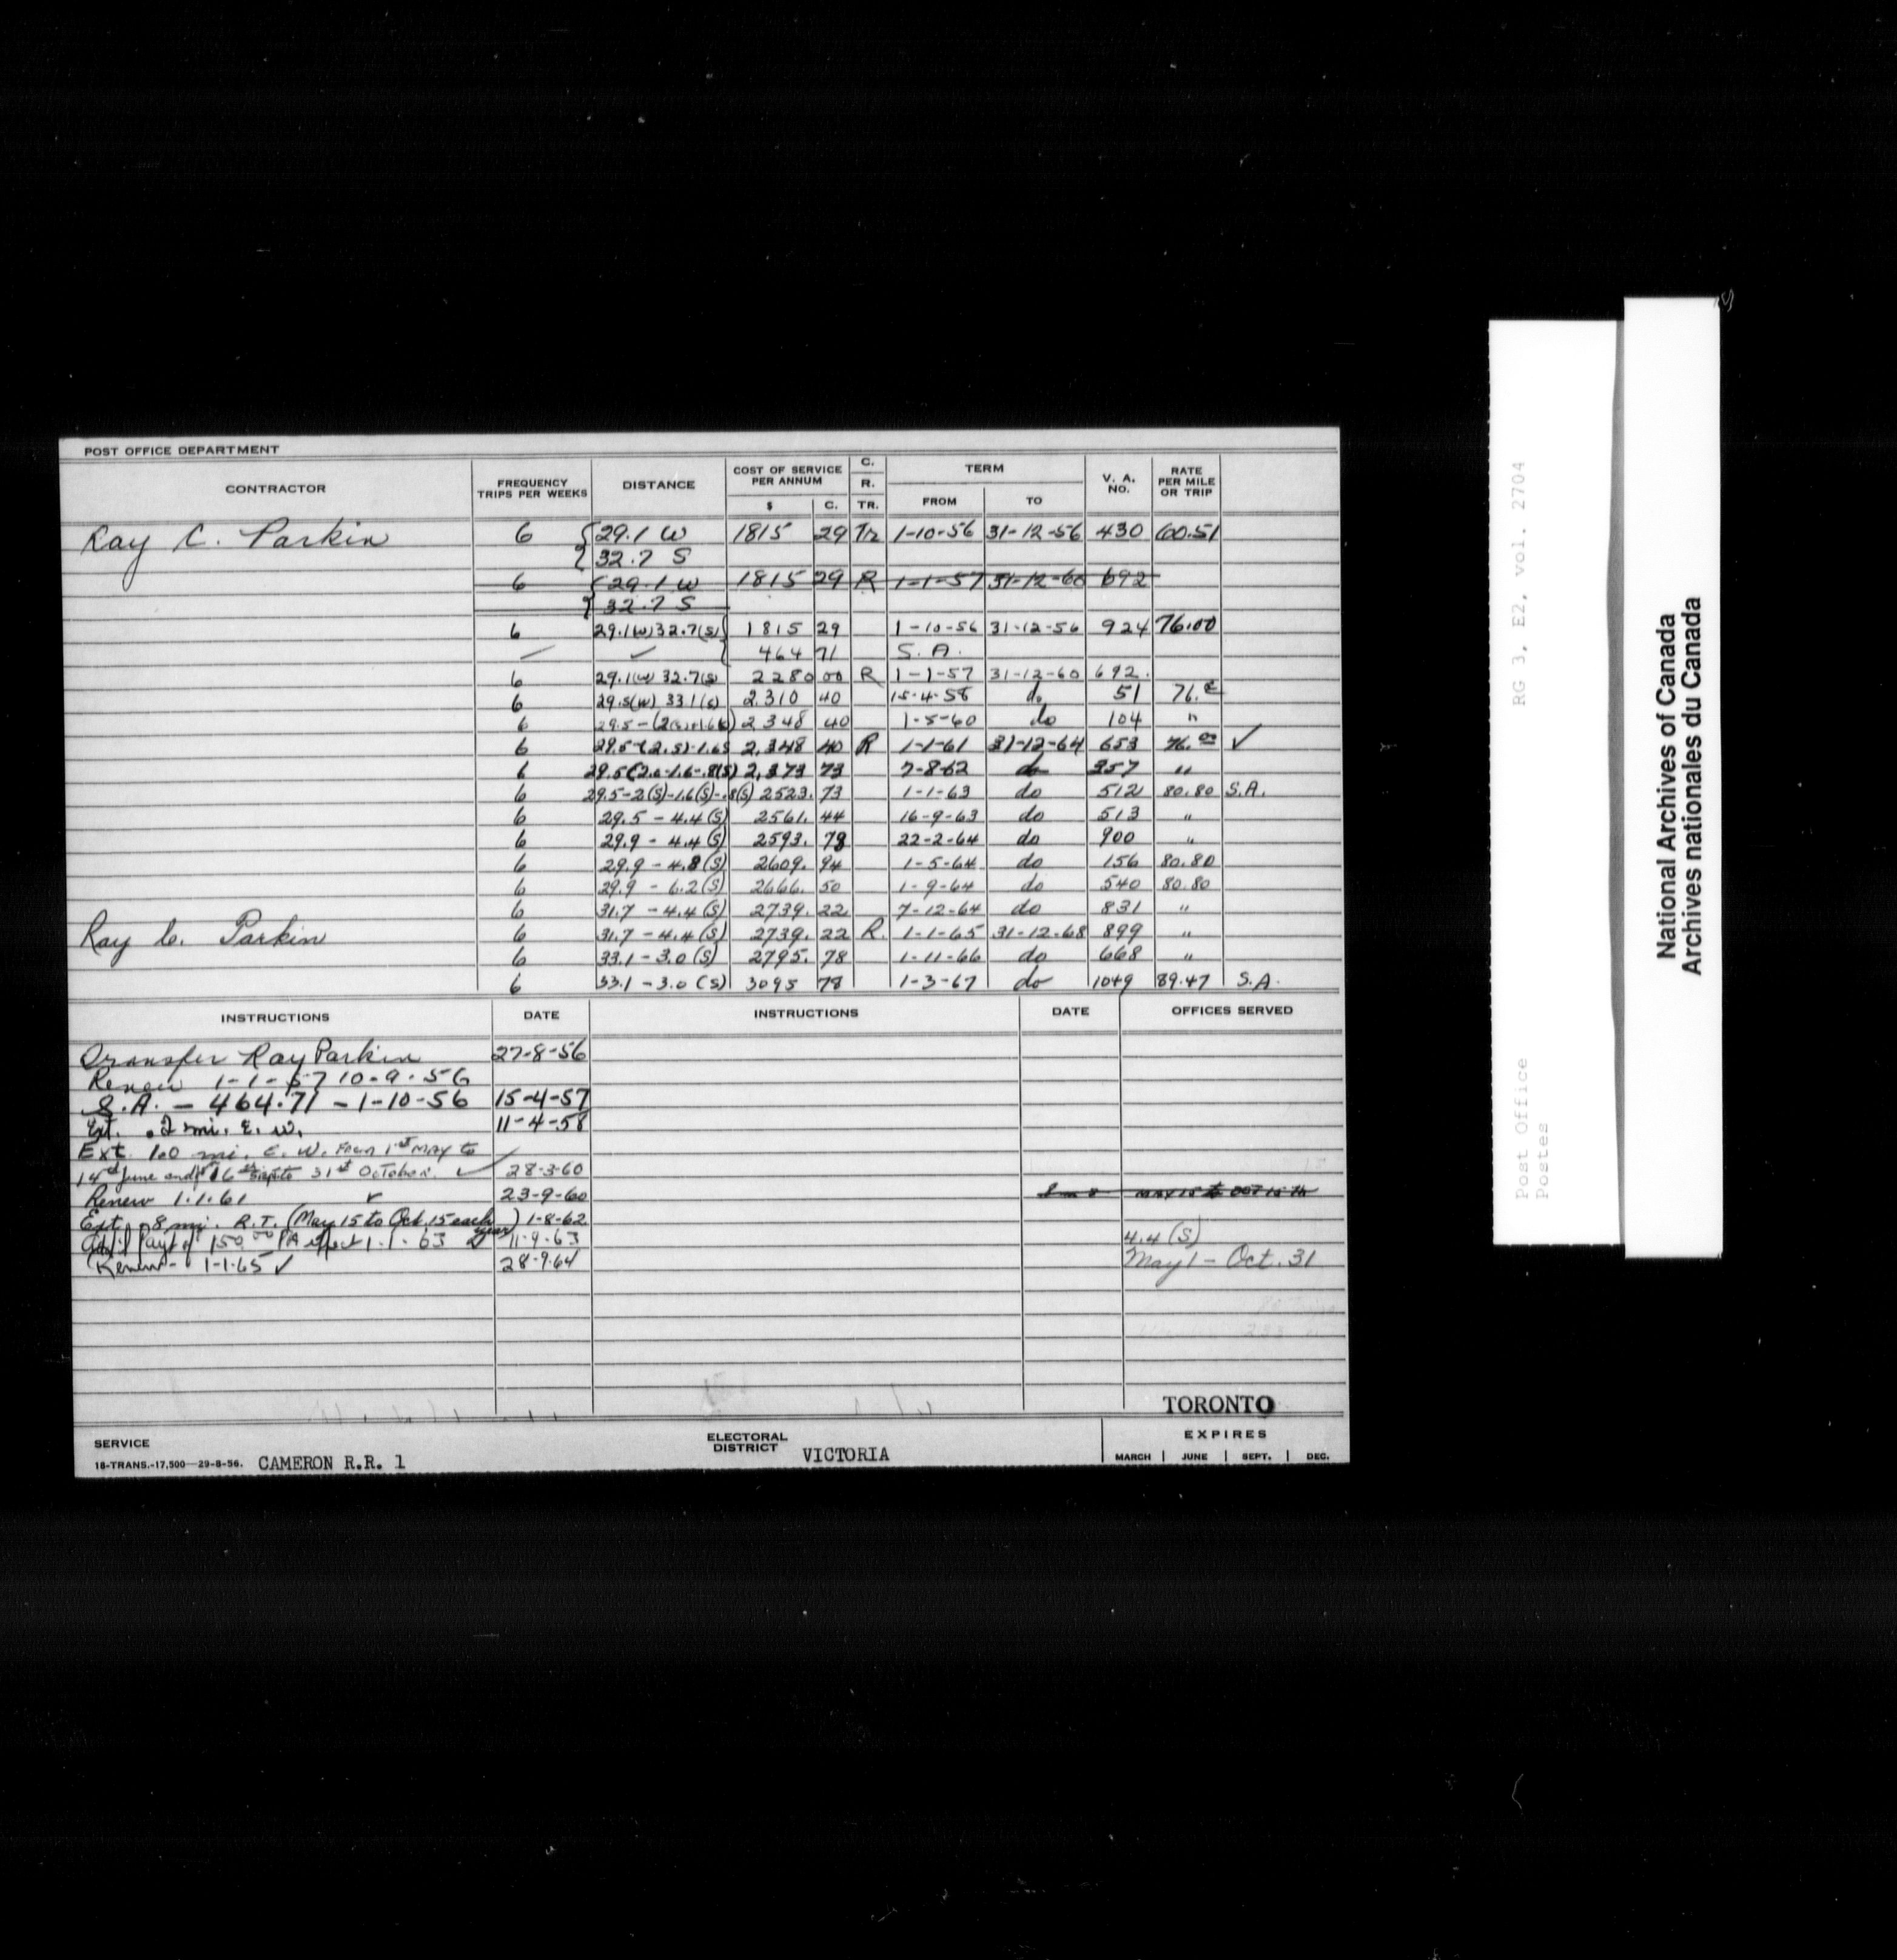 POST OFFICE DEPARTMENT
CONTRACTOR FREQUENCY TRIPS PER WEEKS DISTANCE COST OF SERVICE PER ANNUM $ C. C. R. TR. TERM FROM TO V. A. NO. RATE PER MILE OR TRIP
Ray C. Parkin 6 29.1 W 1815 29 Tr 1-10-56 31-12-56 430 60.51
32.7 S
6 29.1 W 1815 29 R 1-1-57 31-12-60 692
32.7 S
6 29.1(W) 32.7(S) 1815 29 1-10-56 31-12-56 924 76.00
464 71 S.A.
6 29.1(W) 32.7(S) 2280 00 R 1-1-57 31-12-60 692.
6 29.5(W) 33.1(S) 2,310 40 15-4-58 do 51 76.
6 29.5- 2,348 40 1-5-60 do 104 "
6 29.5-(2.S)-1.6S 2,348 40 R 1-1-61 31-12-64 653 76.00 ✓
6 29.5(2.0-1.6-.8(S) 2,373 73 7-8-62 do 357 "
6 29.5-2(S)-1.6(S)-.8(S) 2523. 73 1-1-63 do 512 80.80 S.A.
6 29.5 - 4.4(S) 2561. 44 16-9-63 do 513 "
6 29.9 - 4.4(S) 2593. 78 22-2-64 do 900 "
6 29.9 - 4.8(S) 2609. 94 1-5-64 do 156 80.80
6 29.9 - 6.2(S) 2666. 50 1-9-64 do 540 80.80
6 31.7 - 4.4(S) 2739. 22 7-12-64 do 831 "
Ray C. Parkin 6 31.7 - 4.4(S) 2739. 22 R. 1-1-65 31-12-68 899 "
6 33.1 - 3.0 (S) 2795. 78 1-11-66 do 668 "
6 33.1 - 3.0 (S) 3095 78 1-3-67 do 1049 89.47 S.A.
INSTRUCTIONS DATE INSTRUCTIONS DATE OFFICES SERVED
Transfer Ray Parkin 27-8-56
Renew 1-1-57 10-9-56
S.A. - 464.71 - 1-10-56 15-4-57
Ext. .2 mi. E. W. 11-4-58
Ext. 1.0 mi. E. W. From 1st May to
14th June and 16th Sept to 31st October. ✓ 28-3-60
Renew 1.1.61 ✓ 23-9-60 May 15 to Oct 15 th
Ext. .8 mi. R.T. (May 15 to Oct. 15 each year) 1-8-62
Add'l Payt of 150.00 PA effect 1.1.63 11-9-63 4.4 (S)
Renew - 1-1-65 ✓ 28-9-64 May 1 - Oct. 31
TORONTO
SERVICE
18-TRANS.-17,500-29-8-56. CAMERON R.R. 1 ELECTORAL DISTRICT VICTORIA EXPIRES MARCH JUNE SEPT. DEC.
RG 3, E2, vol. 2704
Post Office
Postes
National Archives of Canada
Archives nationales du Canada